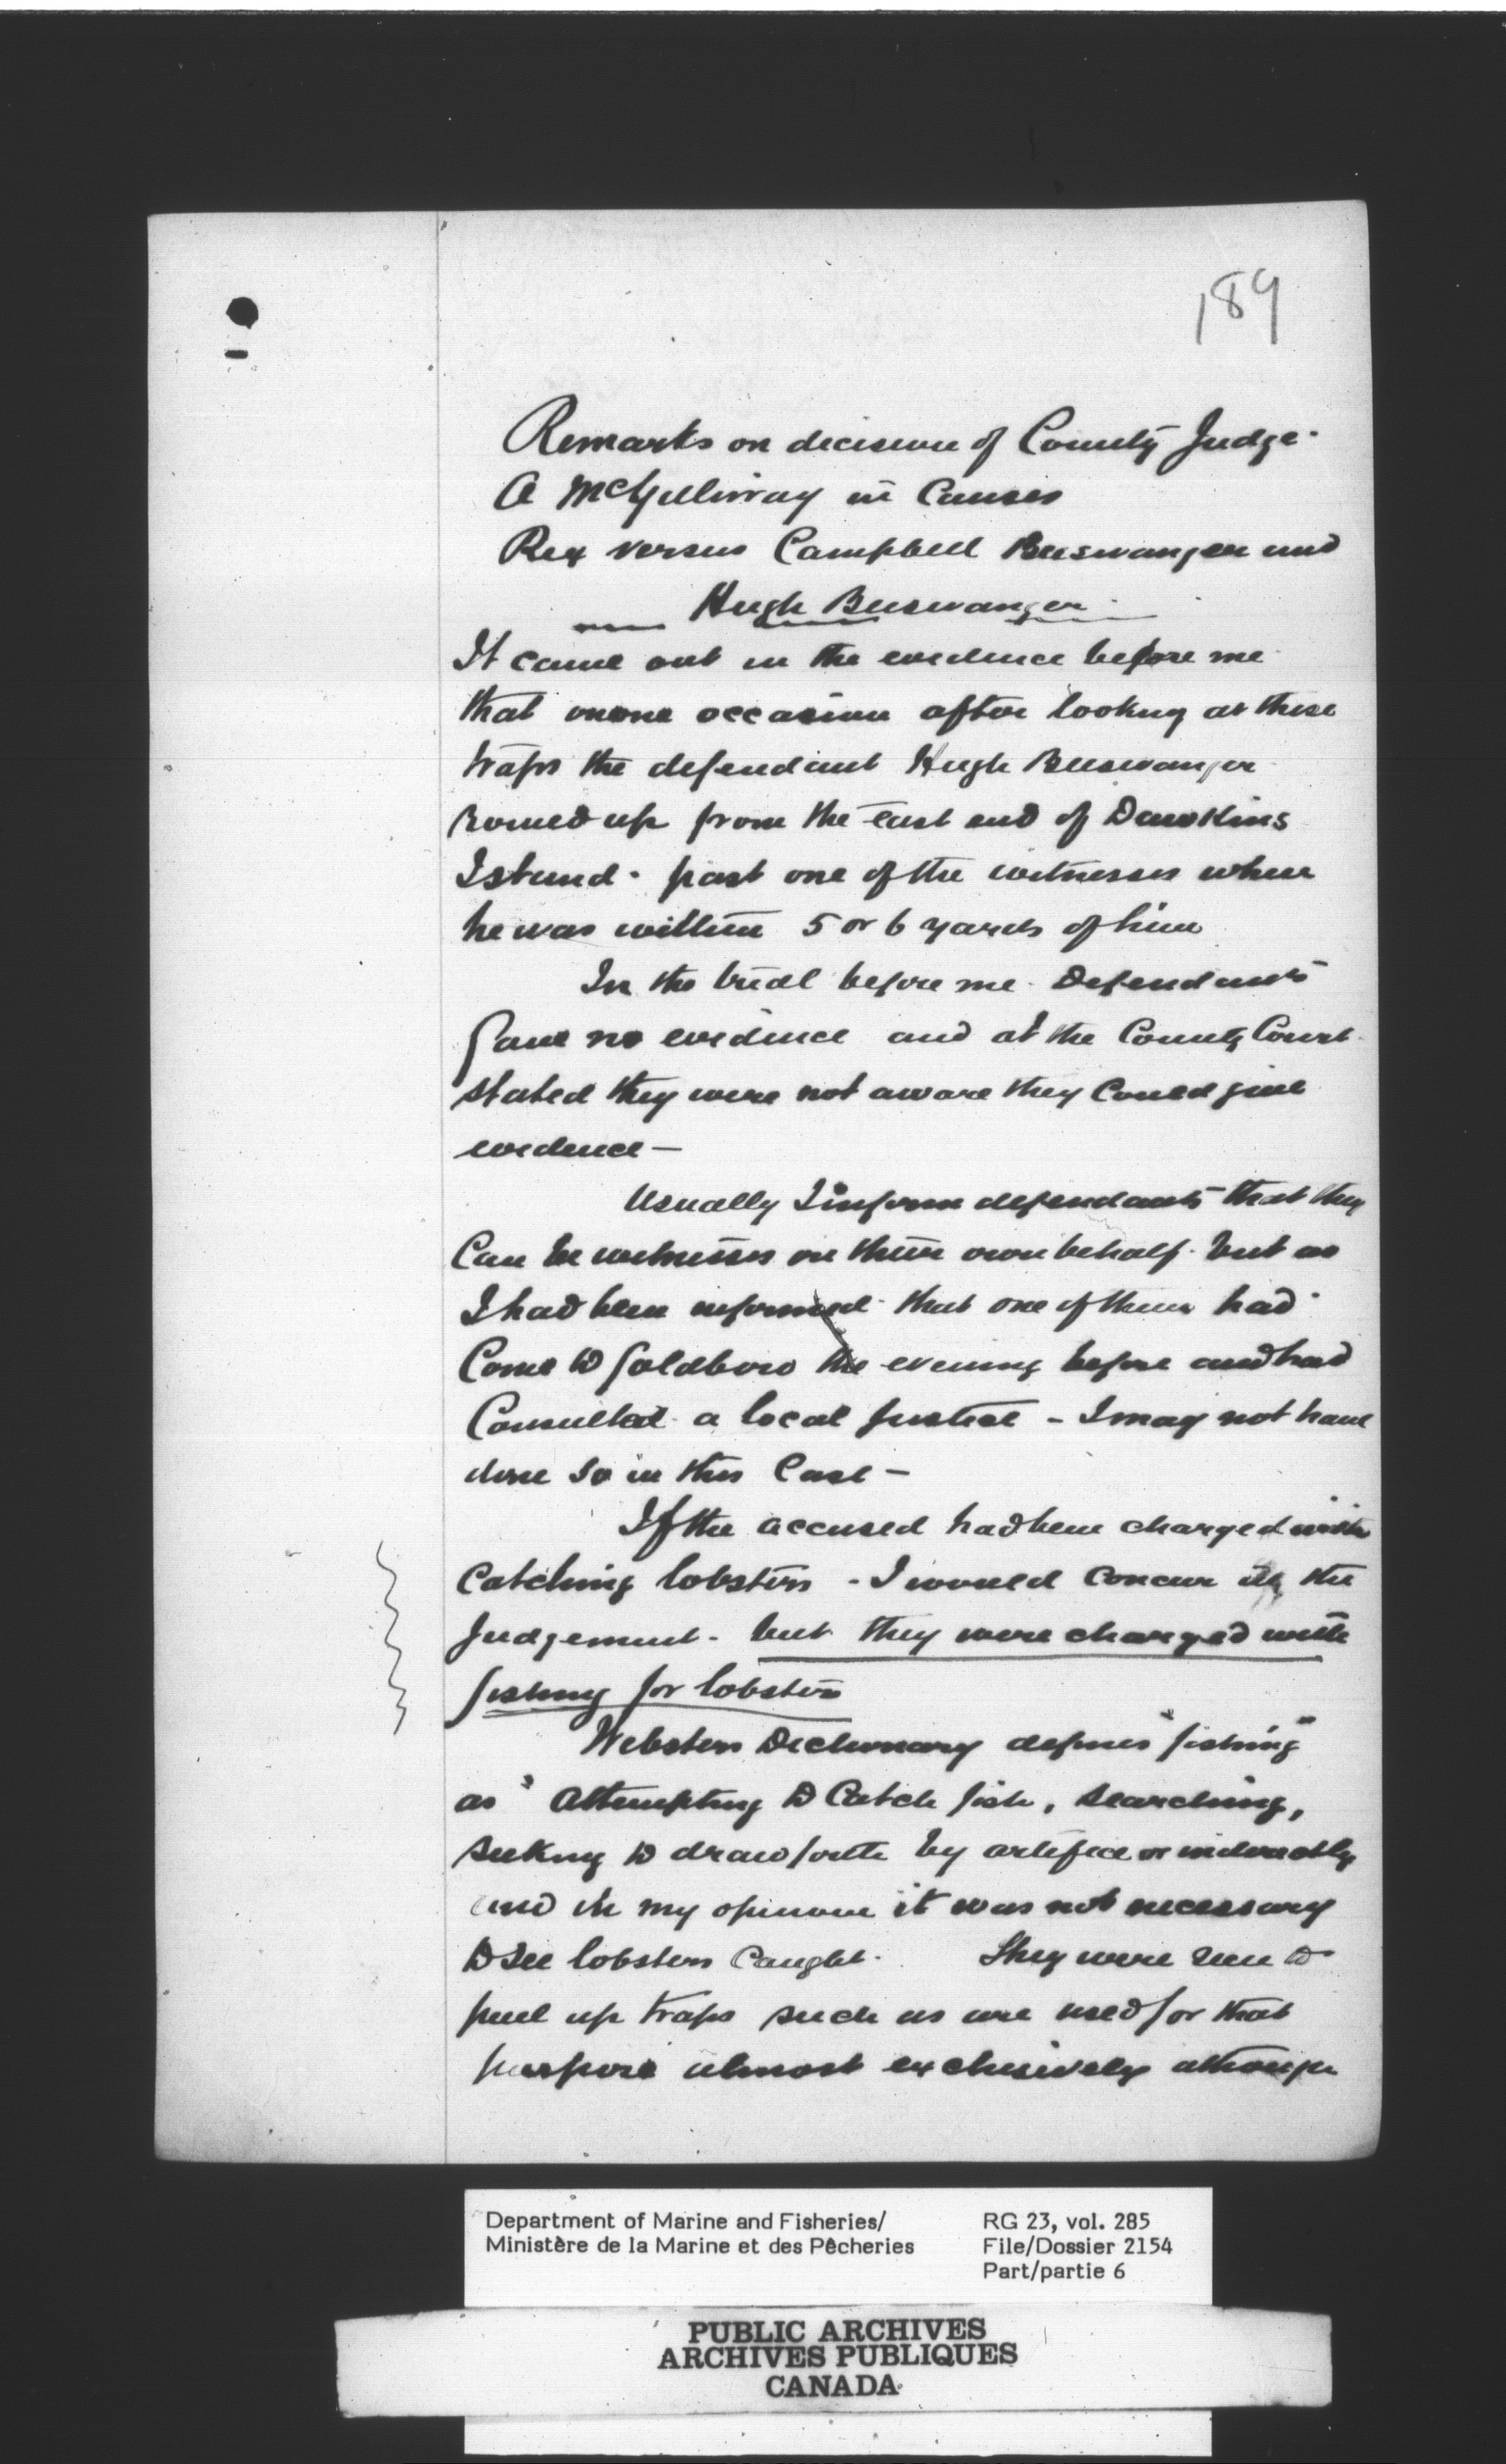 189
Remarks on decision of County Judge
A McGillivray in Causes
Rex versus Campbell Buswanger and
Hugh Buswanger
It came out in the evidence before me
that on one occasion after looking at these
traps the defendant Hugh Buswanger
rowed up from the east end of Dawkins
Island - past one of the witnesses where
he was within 5 or 6 yards of him
In the trial before me Defendants
gave no evidence and at the County Court
stated they were not aware they could give
evidence —
Usually I inform defendants that they
can be witnesses on their own behalf - but as
I had been informed that one of them had
come to Goldboro the evening before and had
Consulted a local Justice - I may not have
done so in this Case —
If the accused had been charged with
catching lobsters - I would concur in the
Judgement - but they were charged with
fishing for lobsters
Websters Dictionary defines "fishing"
as "Attempting to Catch fish, searching,
seeking to draw forth by artifice or indirectly
and in my opinion it was not necessary
to see lobsters caught. They were seen to
pull up traps such as are used for that
purpose almost exclusively although
Department of Marine and Fisheries/
Ministère de la Marine et des Pêcheries
RG 23, vol. 285
File/Dossier 2154
Part/partie 6
PUBLIC ARCHIVES
ARCHIVES PUBLIQUES
CANADA